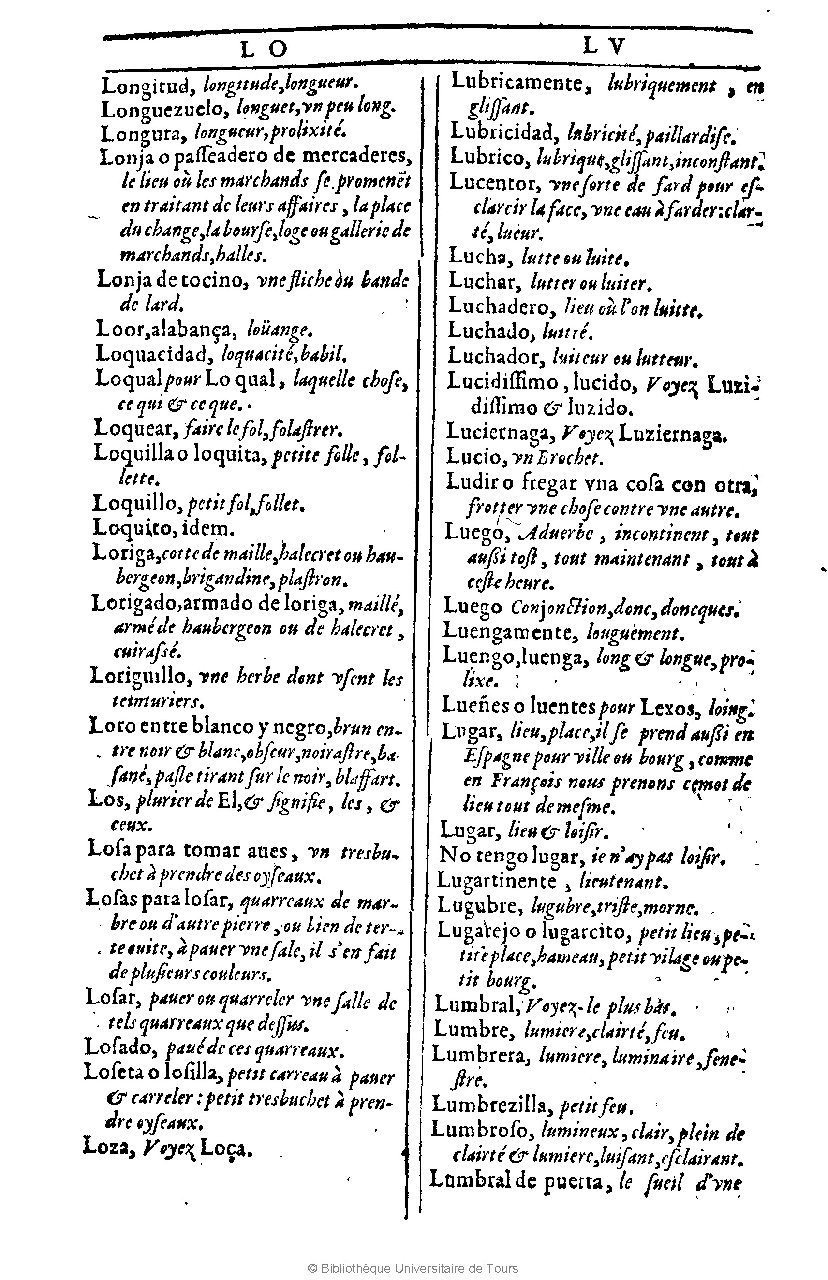 L O
Longitud, longitude, longueur.
Longuezuelo, longuet, vn peu long.
Longura, longueur, prolixité.
Lonja o passeadero de mercaderes,
le lieu où les marchands se promenēt
en traitant de leurs affaires, la place
du change, la bourse, loge ou gallerie de
marchands, halles.
Lonja de tocino, vne fliche ou bande
de lard.
Loor, alabança, loüange.
Loquacidad, loquacité, babil.
Loqual pour Lo qual, laquelle chose,
ce qui & ce que.
Loquear, faire le fol, folastrer.
Loquilla o loquita, petite folle, fol-
lette.
Loquillo, petit fol, follet.
Loquito, idem.
Loriga, cotte de maille, halecret ou hau-
bergeon, brigandine, plastron.
Lorigado, armado de loriga, maillé,
armé de haubergeon ou de halecret,
cuirassé.
Loriguillo, vne herbe dont vsent les
teinturiers.
Loro entre blanco y negro, brun en-
tre noir & blanc, obscur, noirastre, ba-
sané, pasle tirant sur le noir, blaffart.
Los, plurier de El, & signifie, les, &
ceux.
Losa para tomar aues, vn tresbu-
chet à prendre des oyseaux.
Losas para losar, quarreaux de mar-
bre ou d'autre pierre, ou bien de ter-
re cuite, à pauer vne sale, il s'en fait
de plusieurs couleurs.
Losar, pauer ou quarreler vne salle de
tels quarreaux que dessus.
Losado, paué de ces quarreaux.
Loseta o losilla, petit carreau à pauer
& carreler: petit tresbuchet à pren-
dre oyseaux.
Loza, Voyez Loça.
L V
Lubricamente, lubriquement, en
glissant.
Lubricidad, lubricité, paillardise.
Lubrico, lubrique, glissant, inconstant.
Lucentor, vne sorte de fard pour es-
clarcir la face, vne eau à farder: clar-
té, lueur.
Lucha, lutte ou luite.
Luchar, lutter ou luiter.
Luchadero, lieu où l'on luitte.
Luchado, luitté.
Luchador, luiteur ou lutteur.
Lucidissimo, lucido, Voyez Luzi-
dissimo & luzido.
Luciernaga, Voyez Luziernaga.
Lucio, vn Brochet.
Ludir o fregar vna cosa con otra,
frotter vne chose contre vne autre.
Luego, Aduerbe, incontinent, tout
aussi tost, tout maintenant, tout à
ceste heure.
Luego Conjonction, donc, doncques.
Luengamente, longuement.
Luengo, luenga, long & longue, pro-
lixe.
Lueñes o luentes pour Lexos, loing.
Lugar, lieu, place, il se prend aussi en
Espagne pour ville ou bourg, comme
en François nous prenons ce mot de
lieu tout de mesme.
Lugar, lieu & loisir.
No tengo lugar, ie n'ay pas loisir.
Lugartinente, lieutenant.
Lugubre, lugubre, triste, morne.
Lugarejo o lugarcito, petit lieu, pe-
tite place, hameau, petit vilage ou pe-
tit bourg.
Lumbral, Voyez-le plus bas.
Lumbre, lumiere, clairté, feu.
Lumbrera, lumiere, luminaire, fene-
stre.
Lumbrezilla, petit feu.
Lumbroso, lumineux, clair, plein de
clairté & lumiere, luisant, esclairant.
Lumbral de puerta, le sueil d'vne
© Bibliothèque Universitaire de Tours